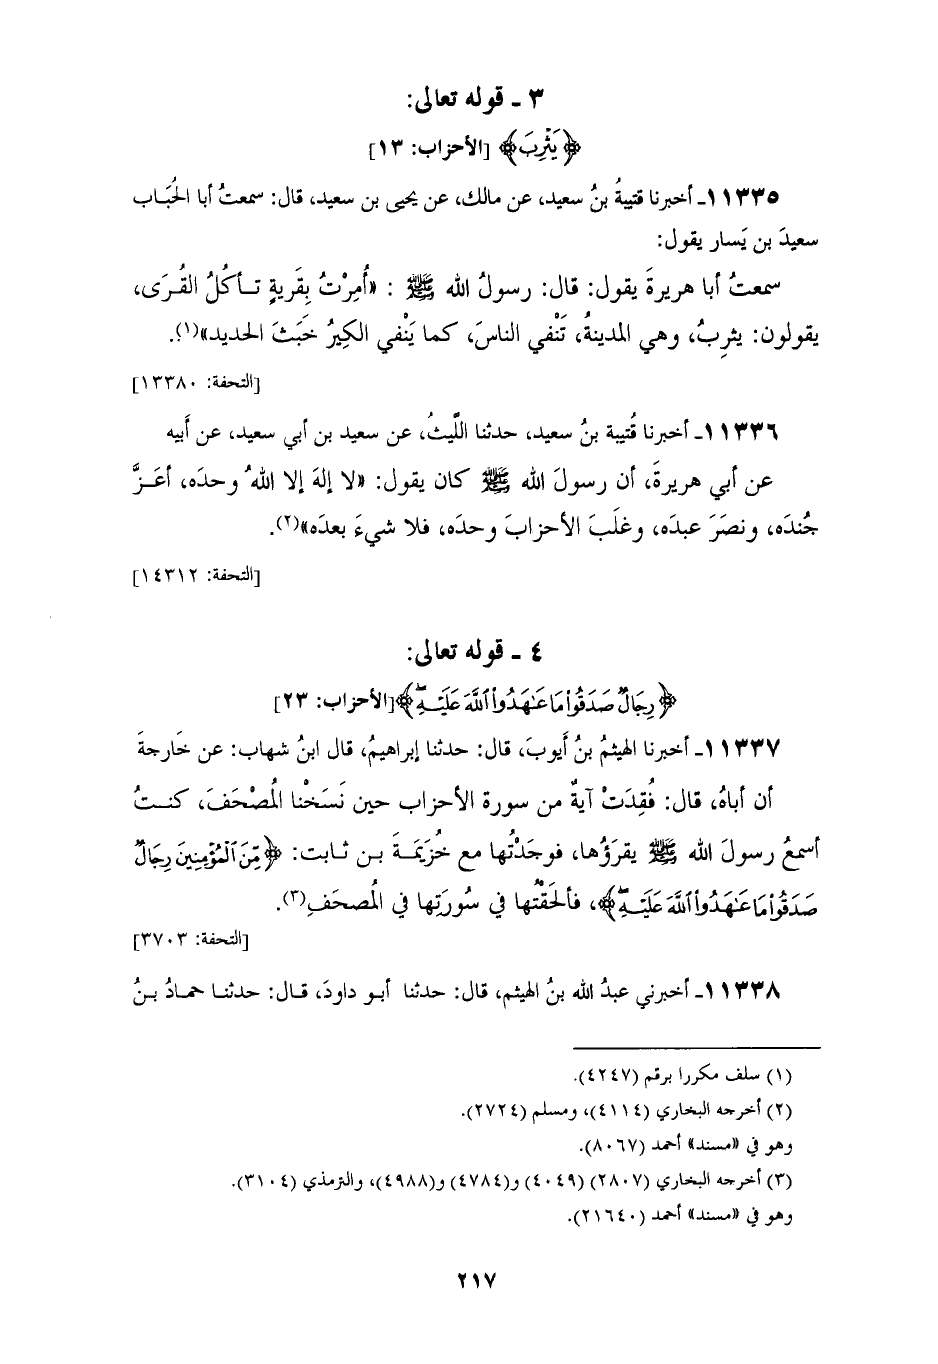 ٣ ـ قوله تعالى:
﴿يَثْرِبَ﴾ [الأحزاب: ١٣]
١١٣٣٥ـ أخبرنا قتيبةُ بنُ سعيد، عن مالك، عن يحيى بن سعيد، قال: سمعتُ أبا الحُبَاب
سعيدَ بن يَسار يقول:
سمعتُ أبا هريرةَ يقول: قال: رسولُ الله ﷺ : «أُمِرْتُ بِقَريةٍ تـأكُلُ القُـرَى،
يقولون: يثرِبُ، وهي المدينةُ، تَنْفي الناسَ، كما يَنْفي الكِيرُ خَبَثَ الحديد»(١).
[التحفة: ١٣٣٨٠]
١١٣٣٦ـ أخبرنا قُتيبة بنُ سعيد، حدثنا اللَّيثُ، عن سعيد بن أبي سعيد، عن أَبيه
عن أبي هريرةَ، أن رسولَ الله ﷺ كان يقول: «لا إلهَ إلا اللهُ وحدَه، أعَـزَّ
جُندَه، ونصَرَ عبدَه، وغلَبَ الأحزابَ وحدَه، فلا شيءَ بعدَه»(٢).
[التحفة: ١٤٣١٢]
٤ ـ قوله تعالى:
﴿رِجَالٌ صَدَقُوا۟ مَا عَـٰهَدُوا۟ ٱللَّهَ عَلَيْـهِۖ﴾[الأحزاب: ٢٣]
١١٣٣٧ـ أخبرنا الهيثمُ بنُ أَيوبَ، قال: حدثنا إبراهيمُ، قال ابنُ شهاب: عن خَارجةَ
أن أباهُ، قال: فُقِدَتْ آيةٌ من سورة الأحزاب حين نَسَخْنا المُصْحَفَ، كنـتُ
أسمعُ رسولَ الله ﷺ يقرَؤُها، فوجَدْتُها مع خُزَيمَـةَ بـن ثـابت: ﴿مِّنَ ٱلْمُؤْمِنِينَ رِجَالٌ
صَدَقُوا۟ مَا عَـٰهَدُوا۟ ٱللَّهَ عَلَيْـهِۖ﴾، فألحَقْتُها في سُورَتِها في المُصحَفِ(٣).
[التحفة: ٣٧٠٣]
١١٣٣٨ـ أخبرني عبدُ الله بنُ الهيثم، قال: حدثنا أبـو داودَ، قـال: حدثنـا حمـادُ بـنُ
(١) سلف مكررا برقم (٤٢٤٧).
(٢) أخرجه البخاري (٤١١٤)، ومسلم (٢٧٢٤).
وهو في «مسند» أحمد (٨٠٦٧).
(٣) أخرجه البخاري (٢٨٠٧) (٤٠٤٩) و(٤٧٨٤) و(٤٩٨٨)، والترمذي (٣١٠٤).
وهو في «مسند» أحمد (٢١٦٤٠).
٢١٧